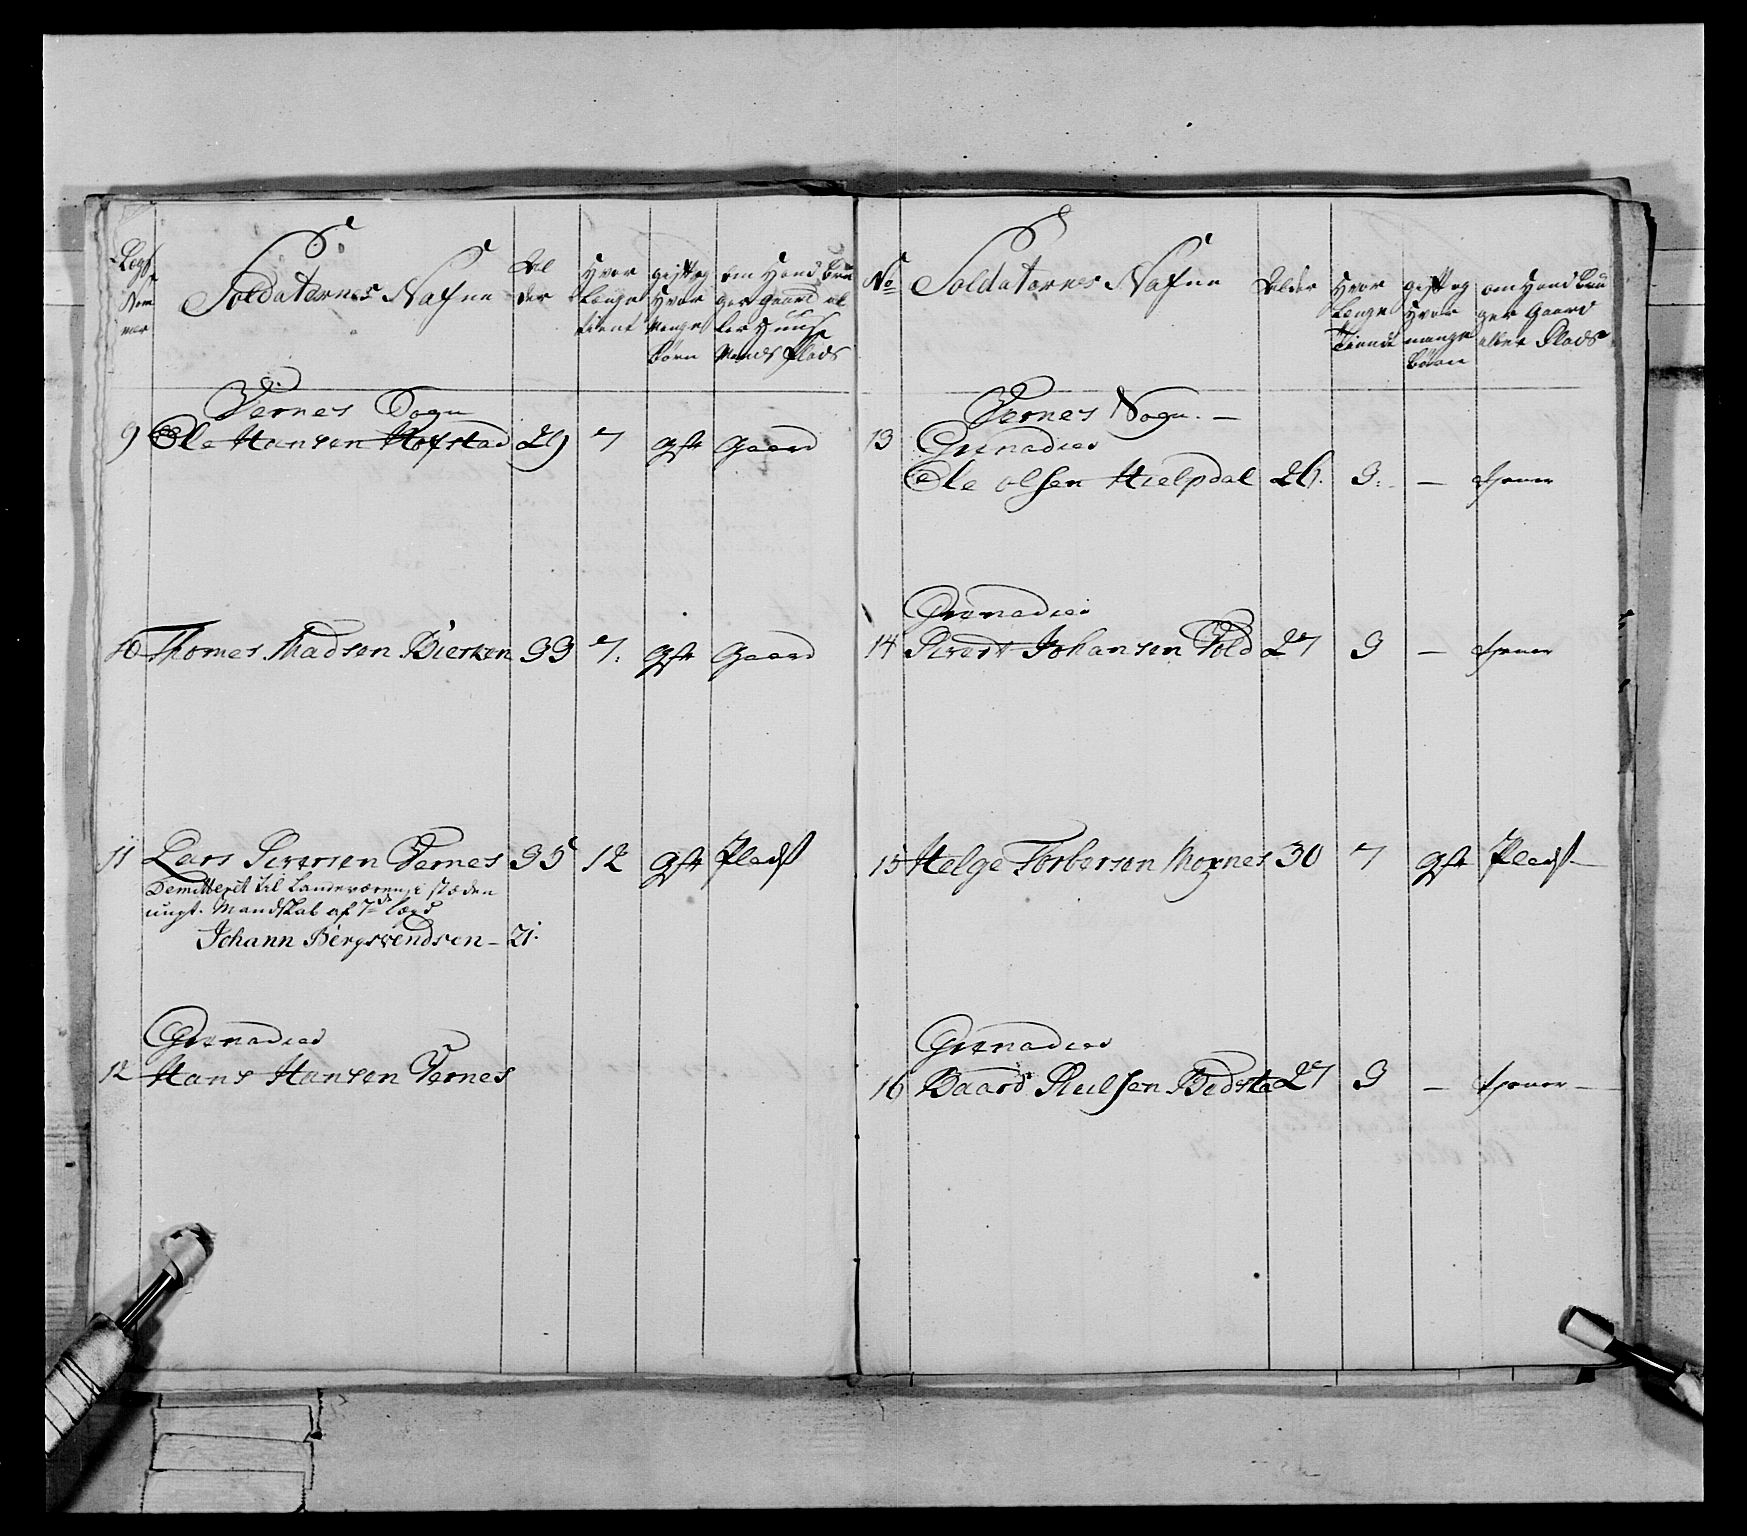 Lægs Num mer
Soldaternes Nafne
Al der
Hvor Længe tient
gift og Hvor Mange Børn
om Hand Bru ger gaard el ler Huuse Mands Plads
Vernes Sogn
9 Ole Hansen Hofstad 29 7 gift Gaard
10 Thomes Madsen Bierken 33 7. gift Gaard
11 Lars Siversen Vernes 35 12 gift Pladß
Demitteret til Landeværen, i stæden
ungt. Mandskab af 7de Lægd
Johann Bergsvendsen - 21.
Grenadeer
12 Hans Hansen Vernes
No
Soldaternes Nafne
Alder
Hvor Længe Tiendt
gift og Hvor mange Børn
om Hand Bru ger Gaard eller Plads
Vernes Sogn. -
13 Grenadeer
Ole Olsen Hielpdal 26. 3. - tjener
Grenadeer
14 Sivert Johansen Vold 27 3 - tjener
15 Helge Torbersen Moxnes 30 7 gift Pladß -
Grenadeer
16 Baard Pulsen Bedsta 27 3 - tjener -